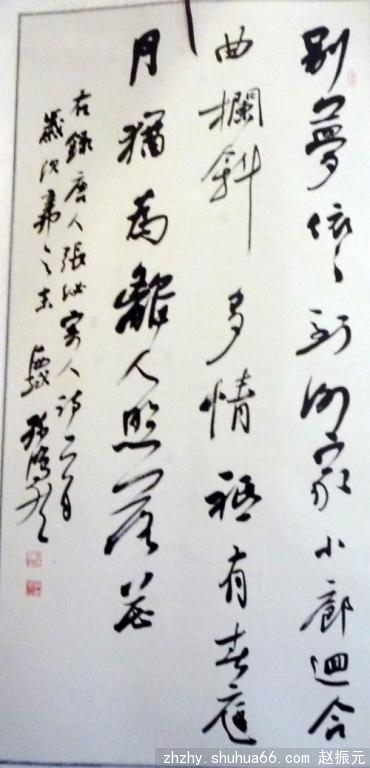 別夢依々到謝家小廊迴合
曲欄斜多情祗有春庭
月猶為離人照落花
右錄唐人張泌寄人詩一首
歲次
zhzhy.shuhua66.com 赵振元